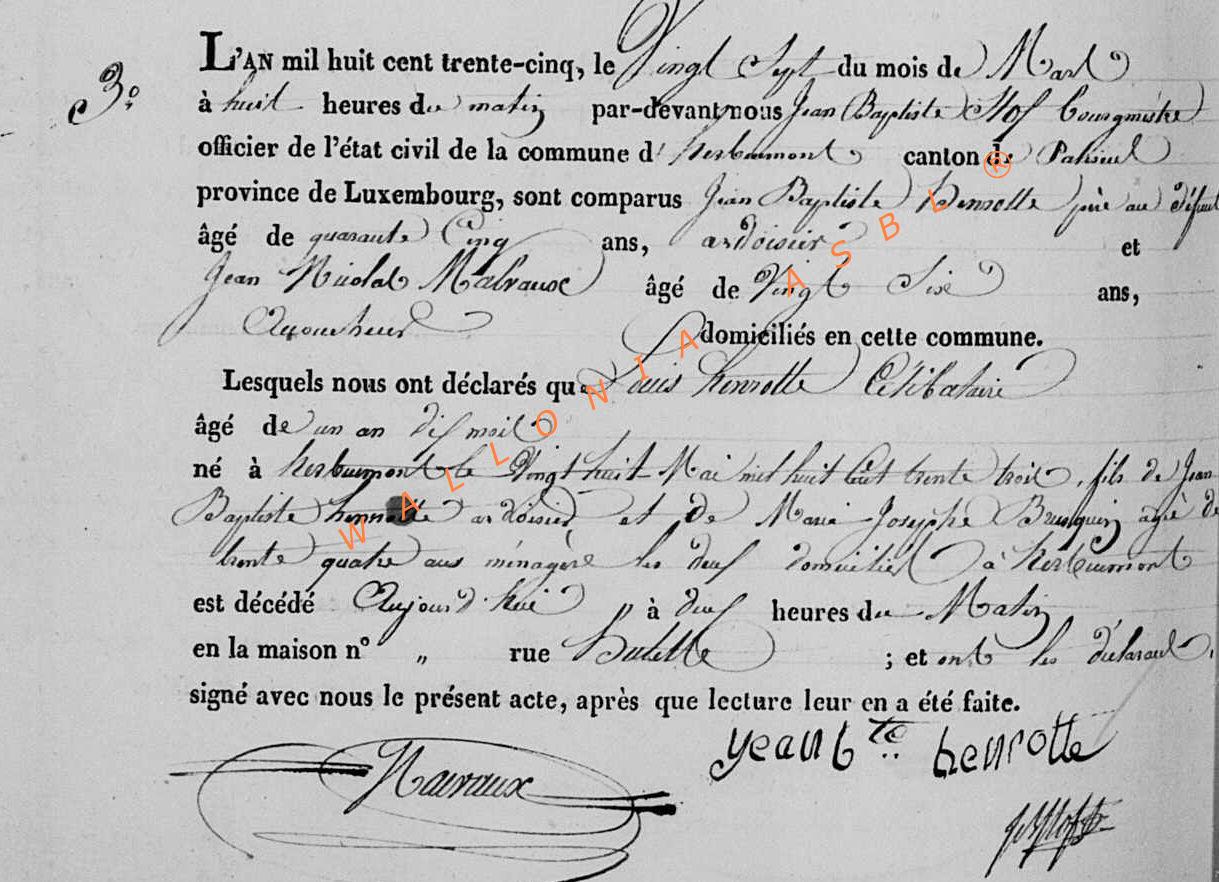 3º
L'AN mil huit cent trente-cinq, le Vingt Sept du mois de Mars
à huit heures du matin par-devant nous Jean Baptiste Stof Bourgmestre
officier de l'état civil de la commune d'herbeumont canton de Paliseul
province de Luxembourg, sont comparus Jean Baptiste henrotte père au défunt
âgé de quarante Cinq ans, ardoisier et
Jean Nicolas Malvaux âgé de Vingt Six ans,
domiciliés en cette commune.
Lesquels nous ont déclarés que Louis henrotte Célibataire
âgé de un an dix mois
né à herbeumont le Vingt huit Mai mil huit Cent trente trois, fils de Jean
Baptiste henrotte ardoisier et de Marie Josephe agée de
trente quatre ans ménagère les deux domiciliés à herbeumont
est décédé Aujourd'hui „ à deux heures du Matin
en la maison nº „ rue ; et ont les déclarants,
signé avec nous le présent acte, après que lecture leur en a été faite.
Malvaux
jean bte henrotte
WALLONIA ASBL ®